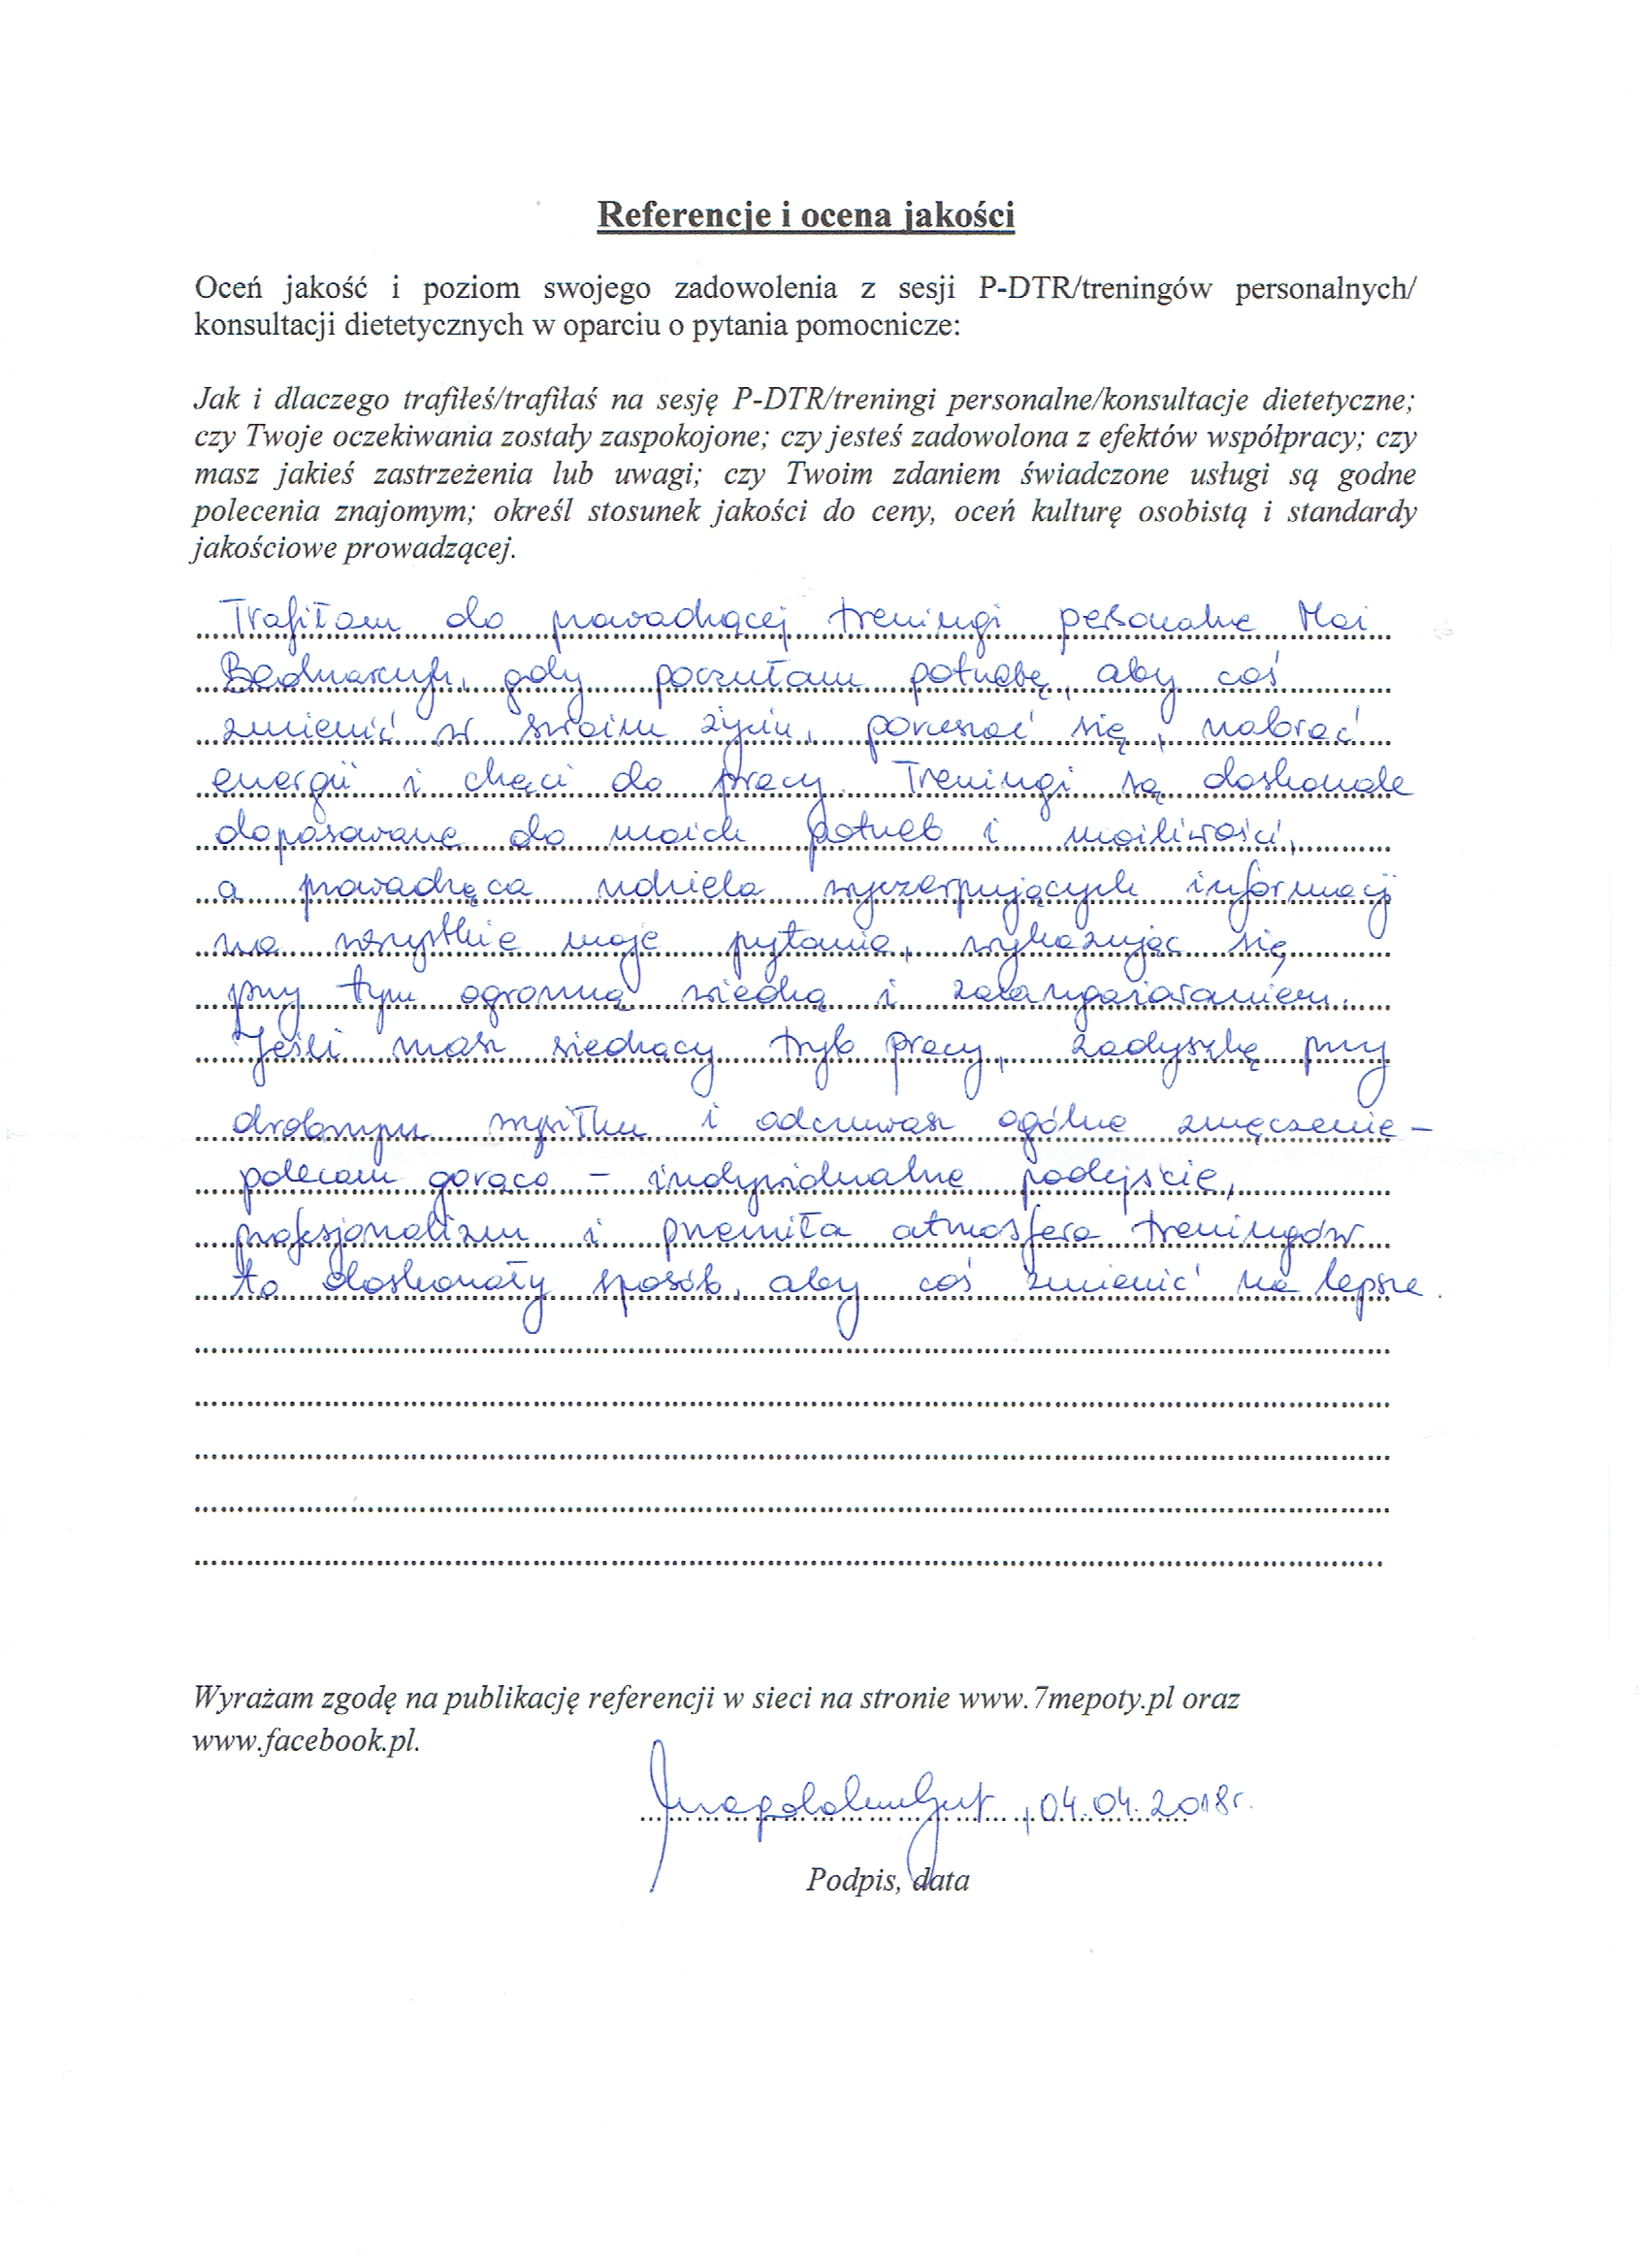 Referencje i ocena jakości
Oceń jakość i poziom swojego zadowolenia z sesji P-DTR/treningów personalnych/
konsultacji dietetycznych w oparciu o pytania pomocnicze:
Jak i dlaczego trafiłeś/trafiłaś na sesję P-DTR/treningi personalne/konsultacje dietetyczne;
czy Twoje oczekiwania zostały zaspokojone; czy jesteś zadowolona z efektów współpracy; czy
masz jakieś zastrzeżenia lub uwagi; czy Twoim zdaniem świadczone usługi są godne
polecenia znajomym; określ stosunek jakości do ceny, oceń kulturę osobistą i standardy
jakościowe prowadzącej.
Trafiłam do prowadzącej treningi personalne Mai
Bednarczyk, gdy poczułam potrzebę, aby coś
zmienić w swoim życiu, poruszać się, nabrać
energii i chęci do pracy. Treningi są doskonale
dopasowane do moich potrzeb i możliwości,
a prowadząca udziela wyczerpujących informacji
na wszystkie moje pytania, wykazując się
przy tym ogromną wiedzą i zaangażowaniem.
Jeśli masz siedzący tryb pracy, zadyszkę przy
drobnym wysiłku i odczuwasz ogólne zmęczenie –
polecam gorąco – indywidualne podejście,
profesjonalizm i przemiła atmosfera treningów
to doskonały sposób, aby coś zmienić na lepsze.
Wyrażam zgodę na publikację referencji w sieci na stronie www.7mepoty.pl oraz
www.facebook.pl.
, 04.04.2018r.
Podpis, data